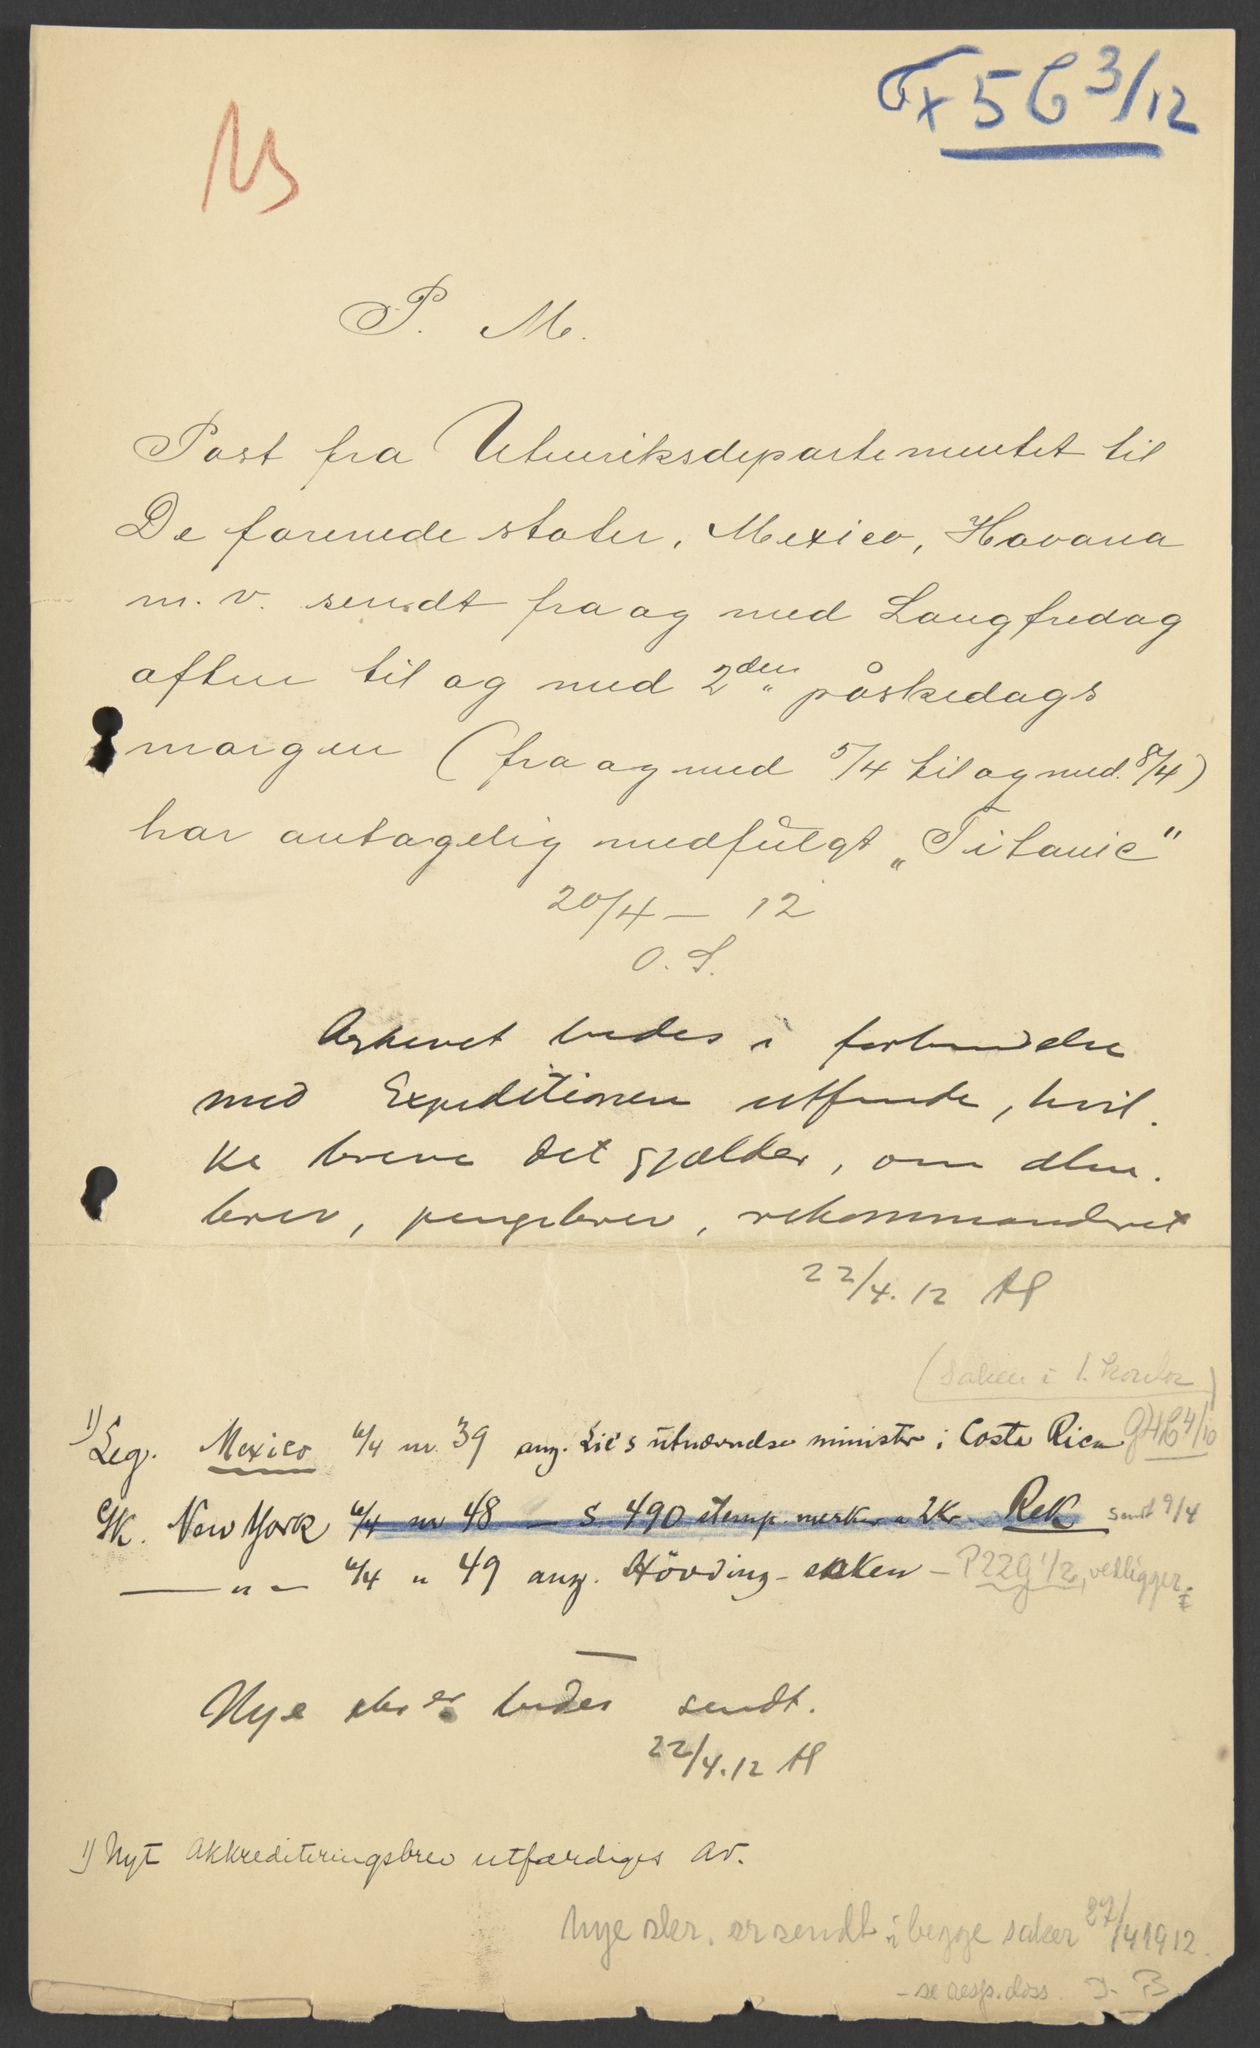 5 6 3/12
P. M.
Post fra Utenriksdepartementet til
De forenede stater, Mexico, Havana
m. v. sendt fra og med Langfredag
aften til og med 2den påskedags
morgen (fra og med 5/4 til og med 8/4)
har antagelig medfulgt „Titanic"
20/4 – 12
O. S.
Arkivet bedes i forbindelse
med Expeditionen utfinde, hvil.
ke breve det gjælder, om alm.
brev, pengebrev, rekommanderet
22/4.12
(Saken i 1. kontor)
1) Leg. Mexico 6/4 nr. 39 ang. Lie's utnævnelse minister i Costa Rica G4C4/10
GK. New York 6/4 nr 48 – S 490 stemp. merker a 2kr. Rek sendt 9/4
— " — 6/4 " 49 ang. Hövding-saken – P22G1/2, vedligger.
Nye bedes sendt.
22/4.12
1) Nyt akkrediteringsbrev utfærdiges av.
Nye sker. er sendt i begge saker 27/4 1912.
– se resp. doss. B